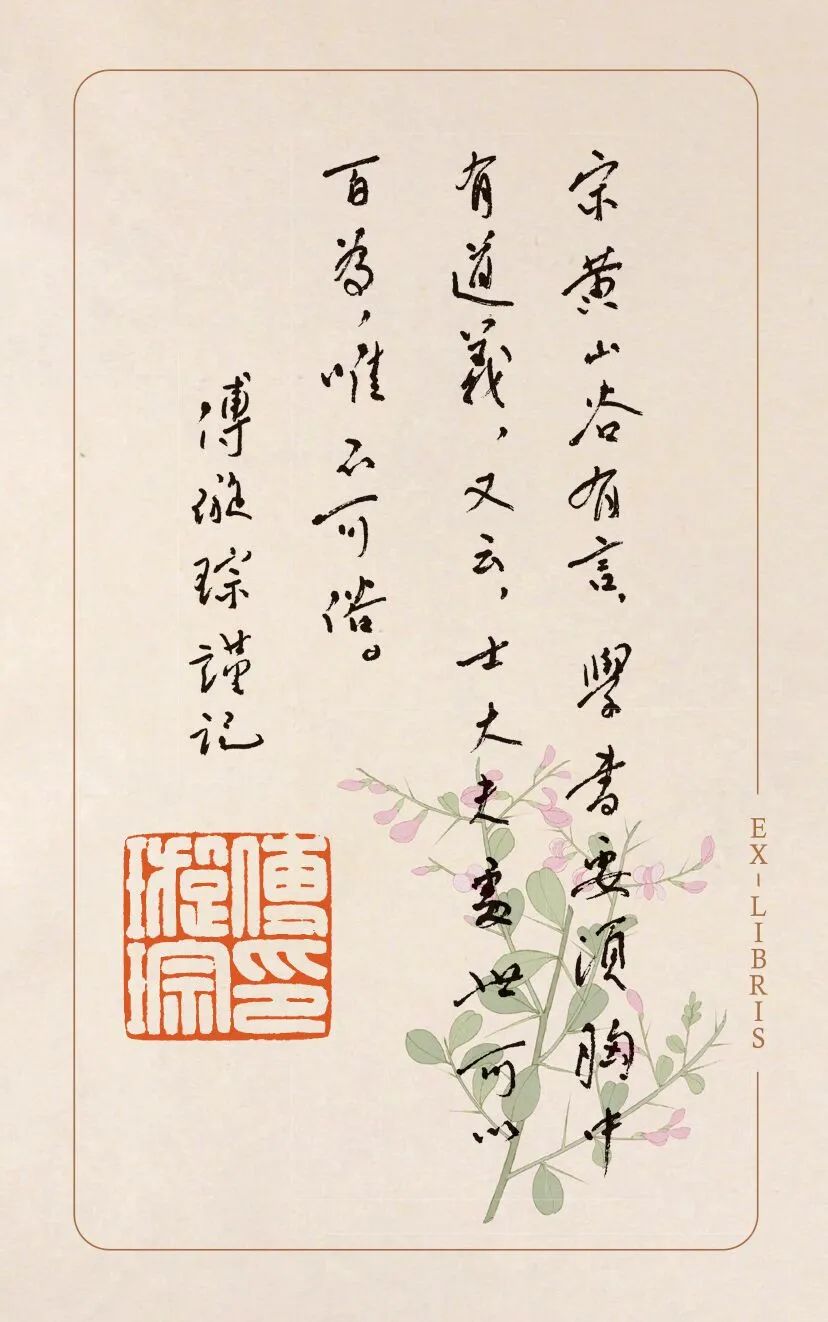 宋黄山谷有言，學書要須胸中
有道義，又云，士大夫處世可以
百為，唯不可俗。
傅璇琮謹記
傅璇琮印
EX-LIBRIS